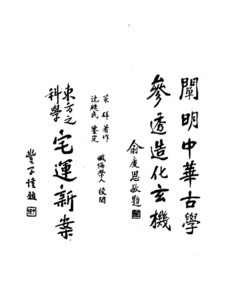 闡明中華古學
參透造化玄機
俞慶恩敬題
榮 鋅 著作
沈瓞民 鑒定
懺悔學人 校閱
東方之科學
宅運新案
豐子愷題